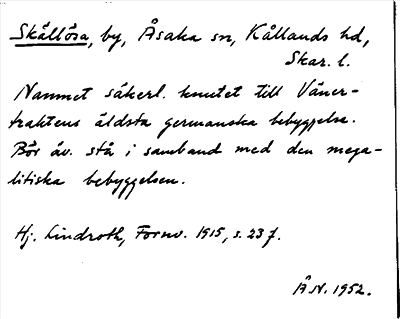 Skällösa, by, Åsaka sn, Kållands hd,
Skar. l.
Namnet säkerl. knutet till Väner-
traktens äldsta germanska bebyggelse.
Bör äv. stå i samband med den mega-
litiska bebyggelsen.
Hj. Lindroth, Fornv. 1915, s. 23 f.
ÅN. 1952.